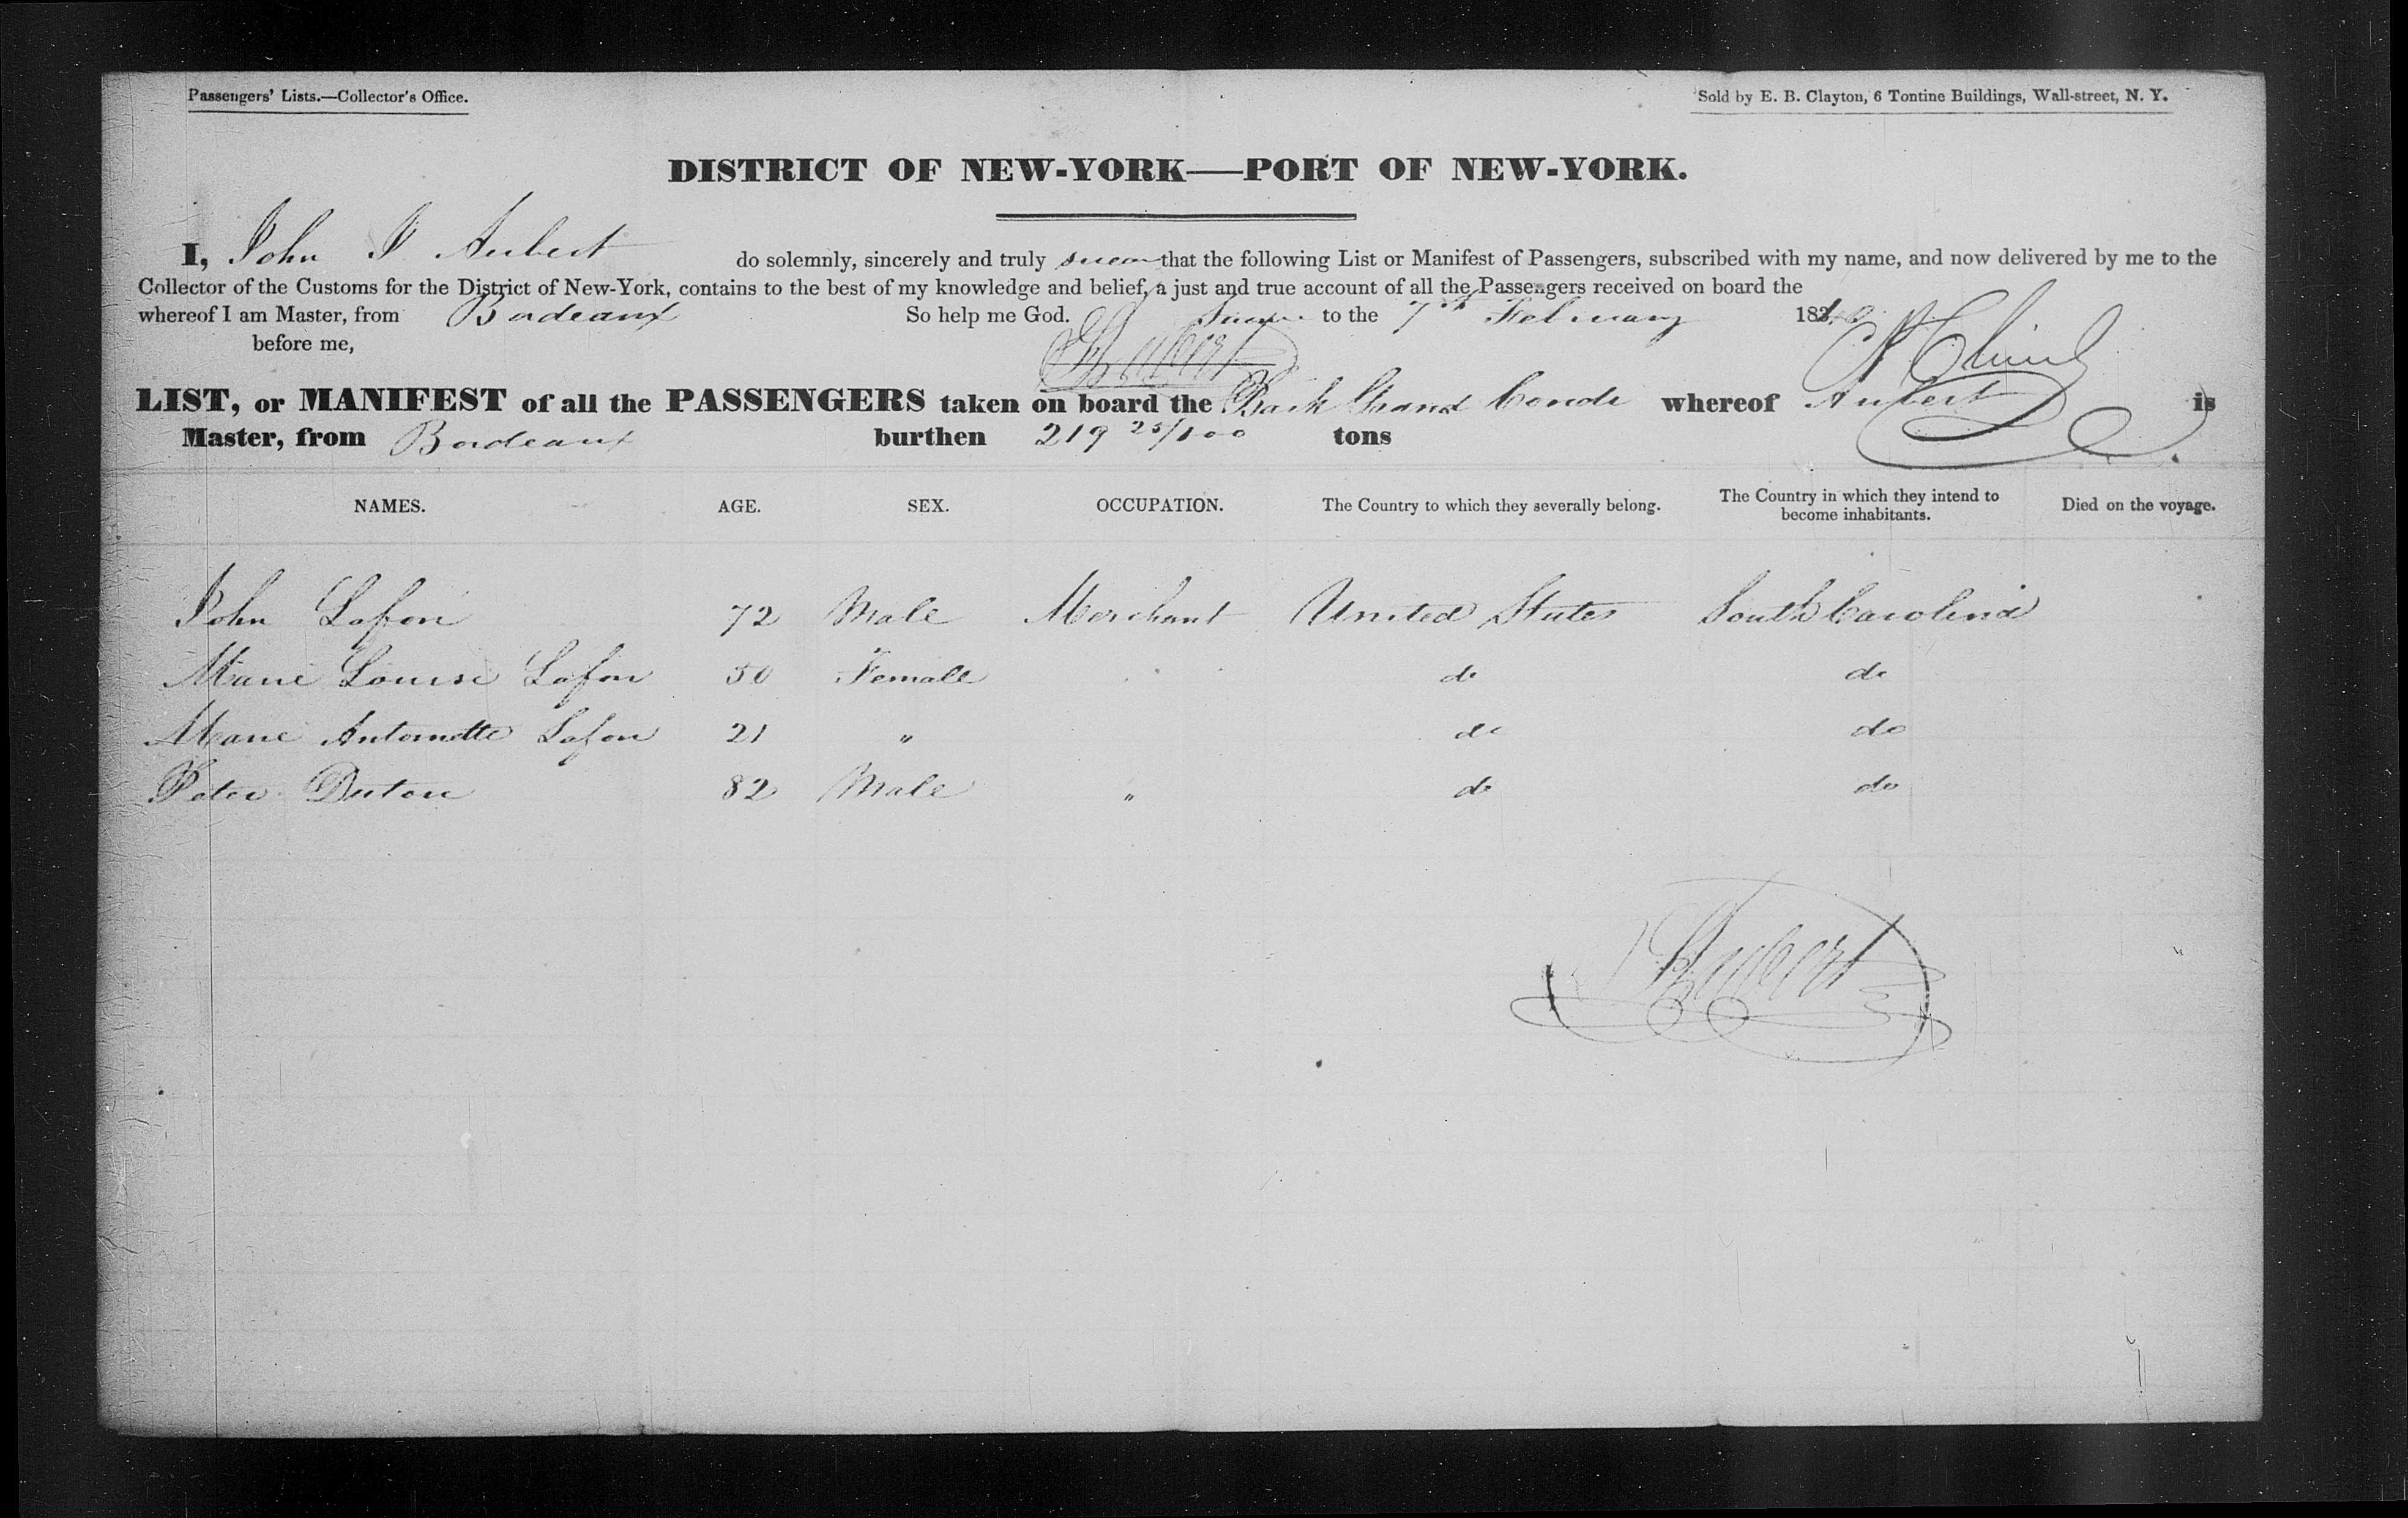 Passengers' Lists.—Collector's Office.
Sold by E. B. Clayton, 6 Tontine Buildings, Wall-street, N. Y.
DISTRICT OF NEW-YORK—PORT OF NEW-YORK.
I, John I Aubert do solemnly, sincerely and truly swear that the following List or Manifest of Passengers, subscribed with my name, and now delivered by me to the
Collector of the Customs for the District of New-York, contains to the best of my knowledge and belief, a just and true account of all the Passengers received on board the
whereof I am Master, from Bordeaux So help me God. Sworn to the 7th February 18
before me,
Aubert
LIST, or MANIFEST of all the PASSENGERS taken on board the Bark Grand Conde whereof Aubert is
Master, from Bordeaux burthen 219 25/100 tons
NAMES. AGE. SEX. OCCUPATION. The Country to which they severally belong. The Country in which they intend to become inhabitants. Died on the voyage.
John Lafon 72 Male Merchant United States South Carolina
Marie Louise Lafon 50 Female do do
Marie Antoinette Lafon 21 " do do
Peter Duton 82 Male " do do
Aubert